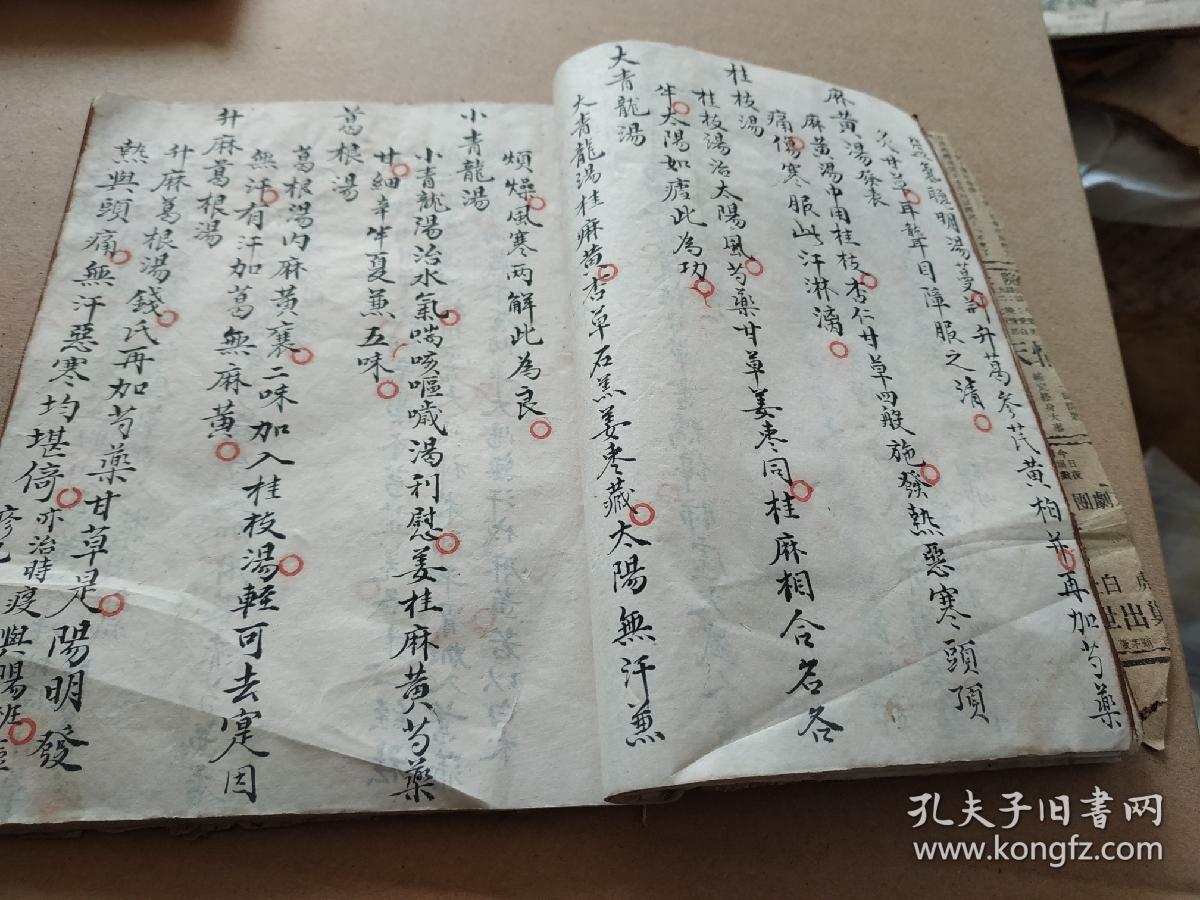 益氣聰明湯蔓荊升葛參芪黃柏並再加芍藥
炙甘草耳聾目障服之清
麻黃湯發表
麻黃湯中用桂枝杏仁甘草四般施發熱惡寒頭項
痛傷寒服此汗淋漓
桂枝湯
桂枝湯治太陽風芍藥甘草姜枣同桂麻相合名各
半太陽如瘧此為功
大青龍湯
大青龍湯桂麻黃杏草石羔姜枣藏太陽無汗兼
煩燥風寒兩解此為良
小青龍湯
小青龍陽治水氣喘咳嘔噦渴利慰姜桂麻黃芍藥
甘細辛半夏兼五味
葛根湯
葛根湯内麻黃襄二味加入桂枝湯軽可去寔因
無汗有汗加葛無麻黃
升麻葛根湯
升麻葛根湯錢氏再加芍藥甘草是陽明發
熱與頭痛無汗惡寒均堪倚亦治時疫與陽斑
孔夫子旧書网
www.kongfz.com